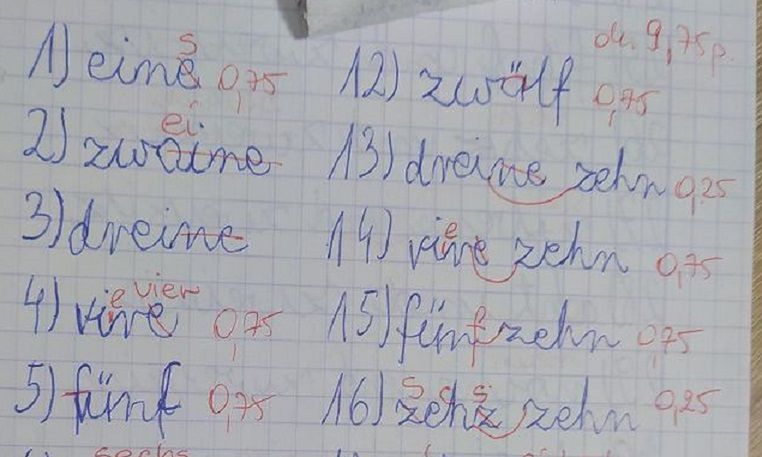 1) eine s 0,75
2) zwaine ei
3) dreine
4) vire e vier 0,75
5) fünf 0,75
sechs
9,75p.
12) zwölf 0,75
13) dreine zehn 0,25
14) vire e zehn 0,75
15) fünfzehn 0,75
16) zehz s s zehn 0,25